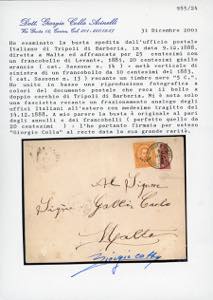 955/24
Dott. Giorgio Colla Asinelli
31 Dicembre 2001
Ho esaminato la busta spedita dall'ufficio postale
Italiano di Tripoli di Barberia, in data 9.12.1888,
diretta a Malta ed affrancata per 25 centesimi con
un francobollo di Levante, 1884, 20 centesimi giallo
arancio ( cat. Sassone n. 14 ) e una verticale di
sinistra di un francobollo da 10 centesimi del 1883,
( cat. Sassone n. 13 ) recante un timbro nero "5 C.".
Ho unito in basso una riproduzione fotografica a
colori del documento postale che reca il bollo a
doppio cerchio di Tripoli di Barberia. Mi è nota solo
una fascetta recante un frazionamento analogo degli
uffici Italiani all'estero con medesimo tragitto del
14.12.1888. A mio parere la busta è originale al pari
degli annulli e dei francobolli ( perfetto quello da
20 centesimi ) : l'ho pertanto firmata per esteso
"Giorgio Colla" al recto data la sua grande rarità.
Al Signor
Malta
Giorgio Colla